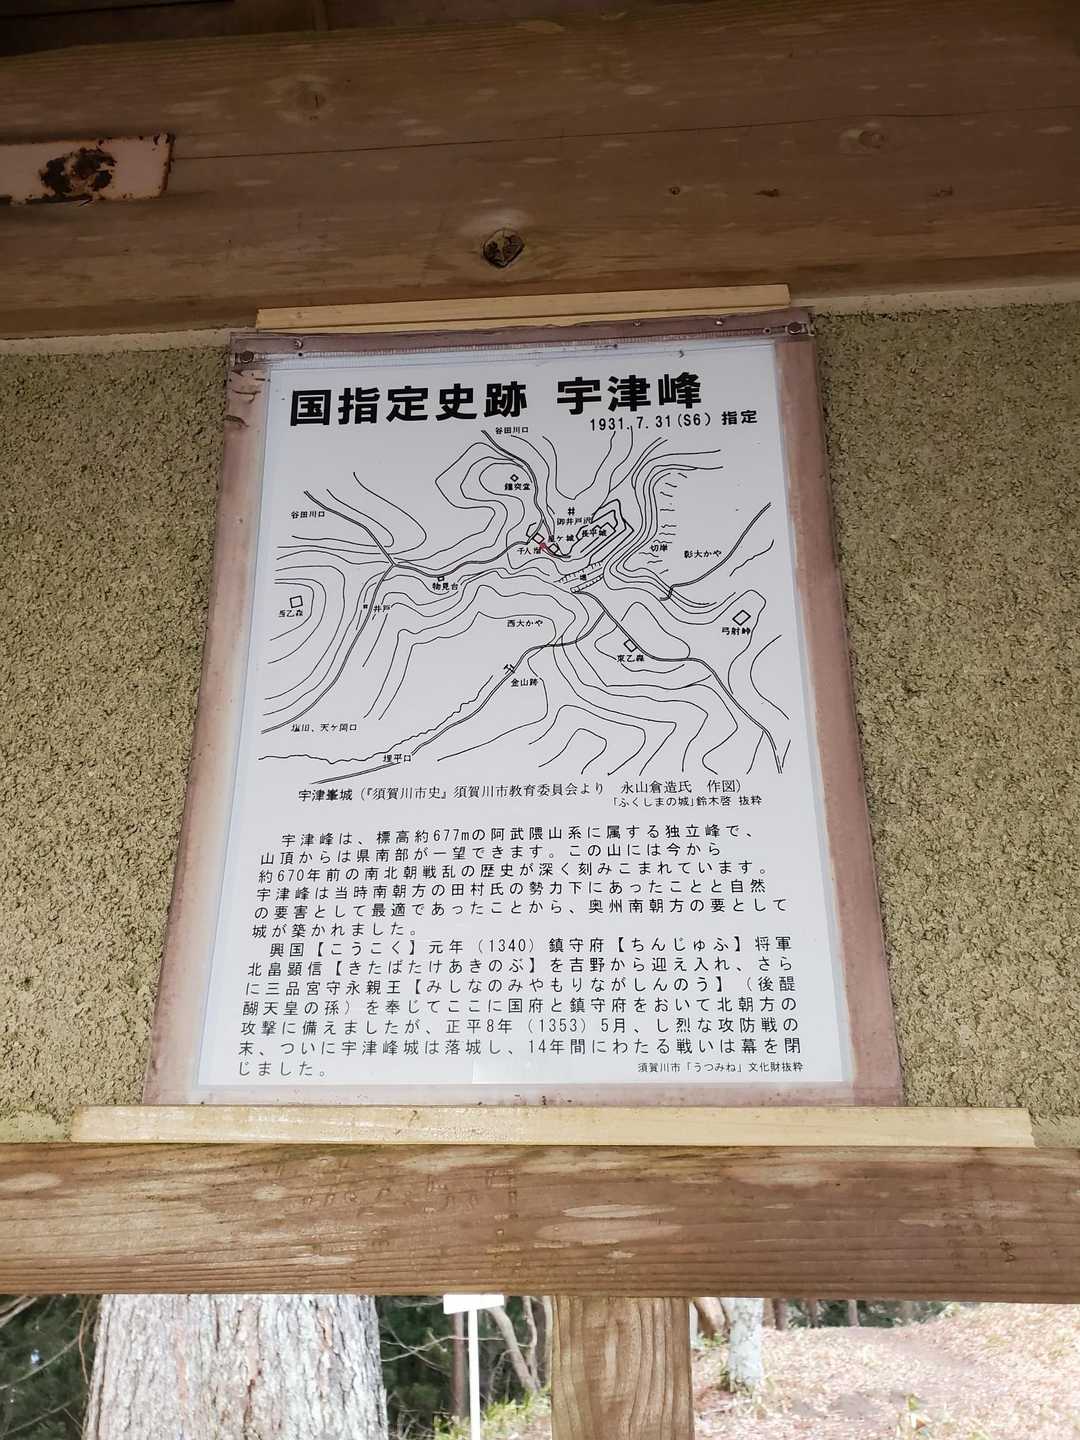 国指定史跡 宇津峰
1931.7.31(S6) 指定
谷田川口
鐘突堂
谷田川口
御井戸沢
星ケ城
長平城
千人溜
切岸
彰大かや
物見台
井戸
西大かや
弓射峠
東乙森
金山跡
塩田、天ケ岡口
埋平口
宇津峯城(『須賀川市史』須賀川市教育委員会より 永山倉造氏 作図)
「ふくしまの城」鈴木啓 抜粋
宇津峰は、標高約677mの阿武隈山系に属する独立峰で、
山頂からは県南部が一望できます。この山には今から
約670年前の南北朝戦乱の歴史が深く刻みこまれています。
宇津峰は当時南朝方の田村氏の勢力下にあったことと自然
の要害として最適であったことから、奥州南朝方の要として
城が築かれました。
興国【こうこく】元年（1340）鎮守府【ちんじゅふ】将軍
北畠顕信【きたばたけあきのぶ】を吉野から迎え入れ、さら
に三品宮守永親王【みしなのみやもりながしんのう】（後醍
醐天皇の孫）を奉じてここに国府と鎮守府をおいて北朝方の
攻撃に備えましたが、正平8年（1353）5月、し烈な攻防戦の
末、ついに宇津峰城は落城し、14年間にわたる戦いは幕を閉
じました。
須賀川市「うつみね」文化財抜粋